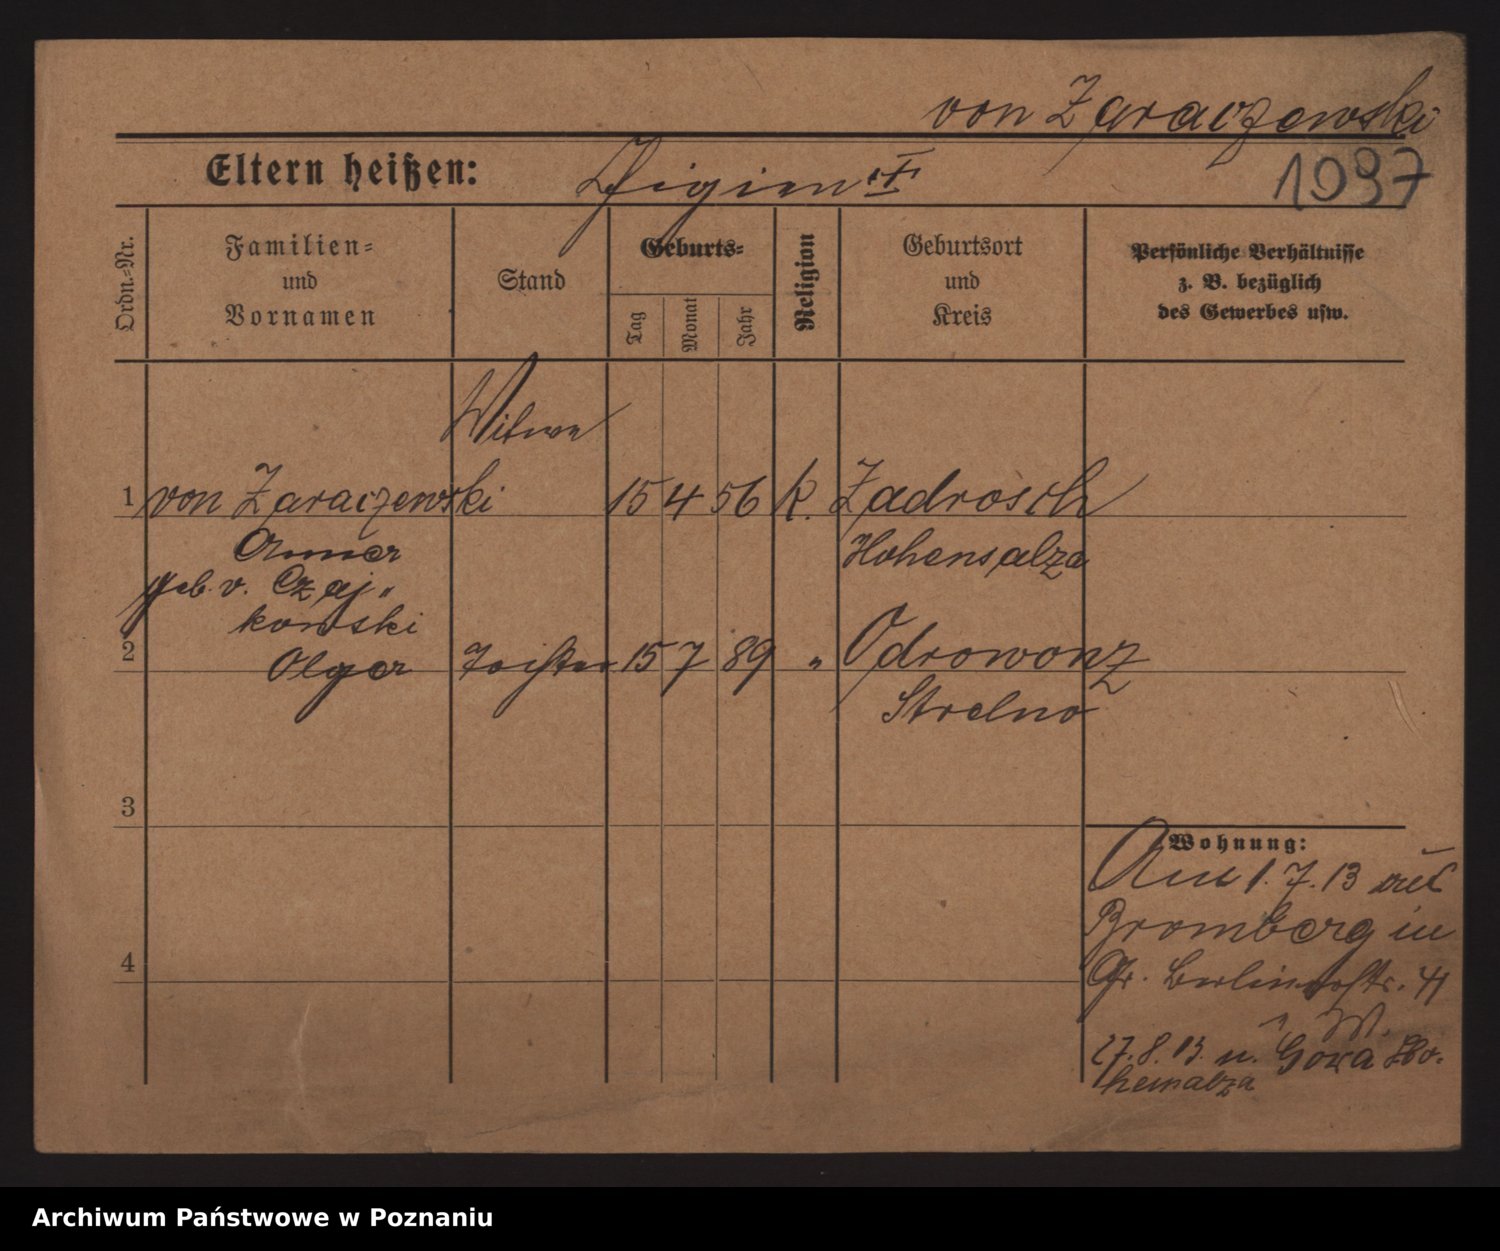 von Zaraczewski
Eltern heißen:
1097
Ordn.-Nr.
Familien-
und
Vornamen
Stand
Geburts-
Tag
Monat
Jahr
Religion
Geburtsort
und
Kreis
Persönliche Verhältnisse
z. B. bezüglich
des Gewerbes usw.
Witwe
1 von Zaraczewski 15 4 56 k. Zadrosch
Anna Hohensalza
geb. v. Czaj„
kowski
2 Olga Tochter 15 7 89 „ Odrowonz
Strelno
3
Wohnung:
Am 1.7.13 aus
Bromberg in
4
Gr. Berlinerstr. 41
W.
27.8.13. n. Gora Ho-
hensalza
Archiwum Państwowe w Poznaniu